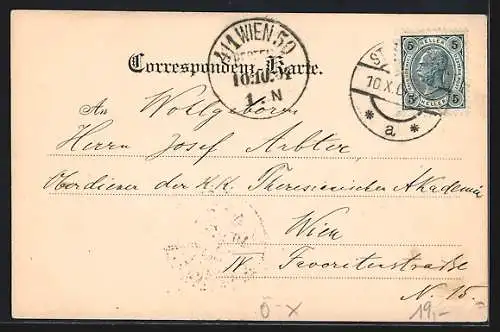 4/1 WIEN 50
BESTELLT
10.10.01
1. N
Correspondenz-Karte.
5 HELLER 5
5 HELLER 5
10.X.0
* a *
An Wohlgeboren
Herrn Josef Arbter
Oberdiener der K.K. Theresianischen Akademie
Wien
IV Favoritenstraße
N. 15.
Ö-X
19,-